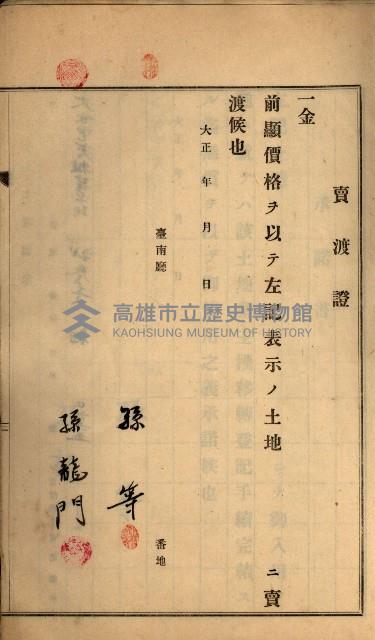 賣渡證
一金
前顯價格ヲ以テ左記表示ノ土地　ニ賣
渡候也
大正　年　月　日
臺南廳
番地
孫等
孫龍門
高雄市立歷史博物館
KAOHSIUNG MUSEUM OF HISTORY